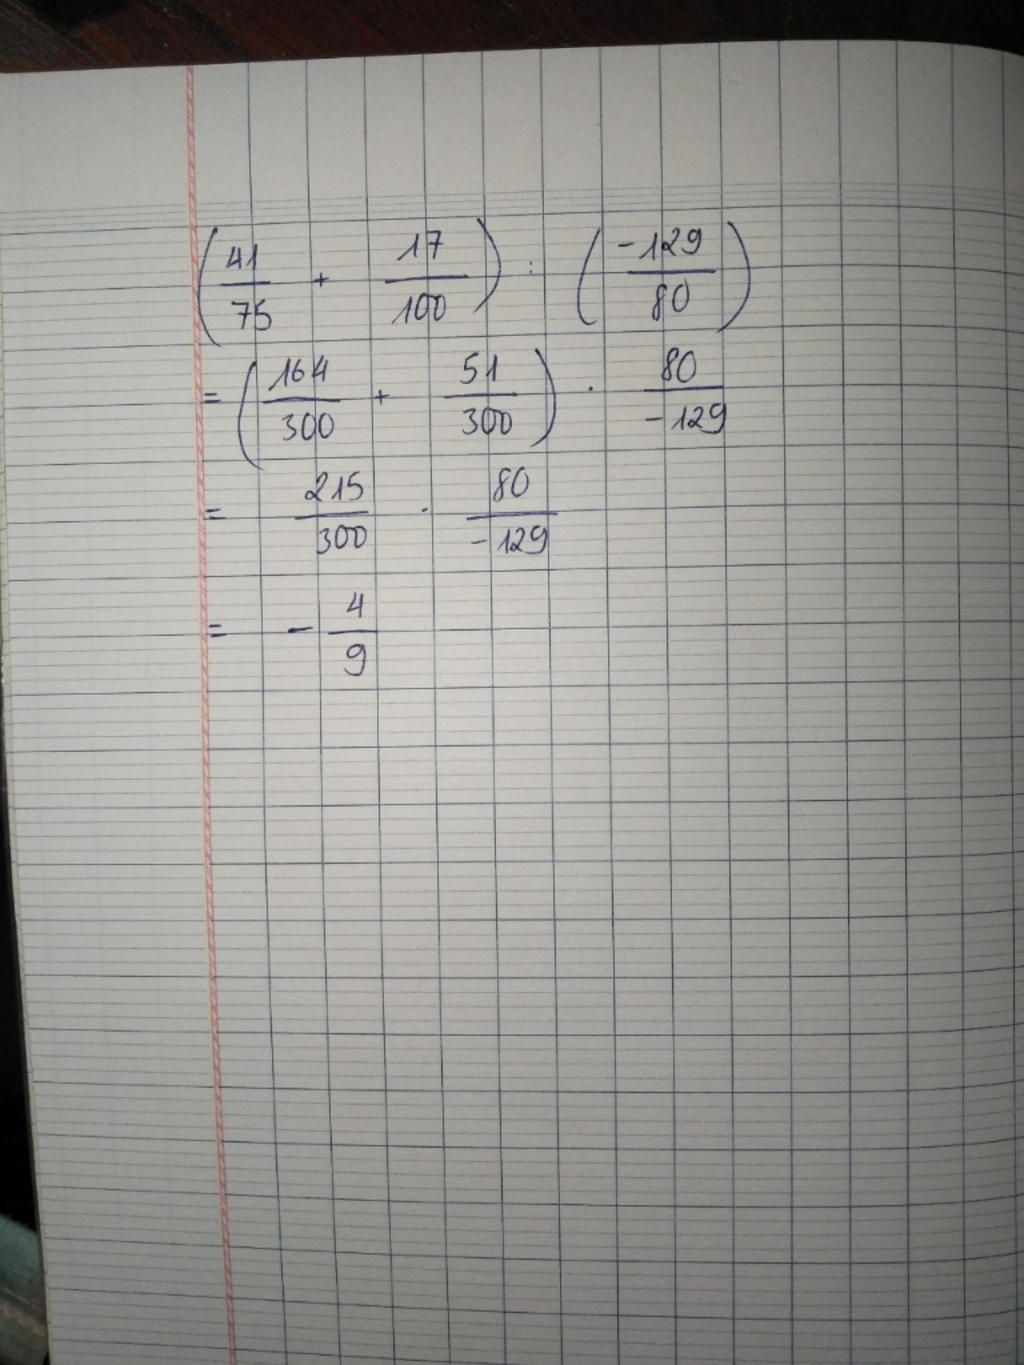 (41/75 + 17/100) : (-129/80)
= (164/300 + 51/300) . 80/-129
= 215/300 . 80/-129
= - 4/9